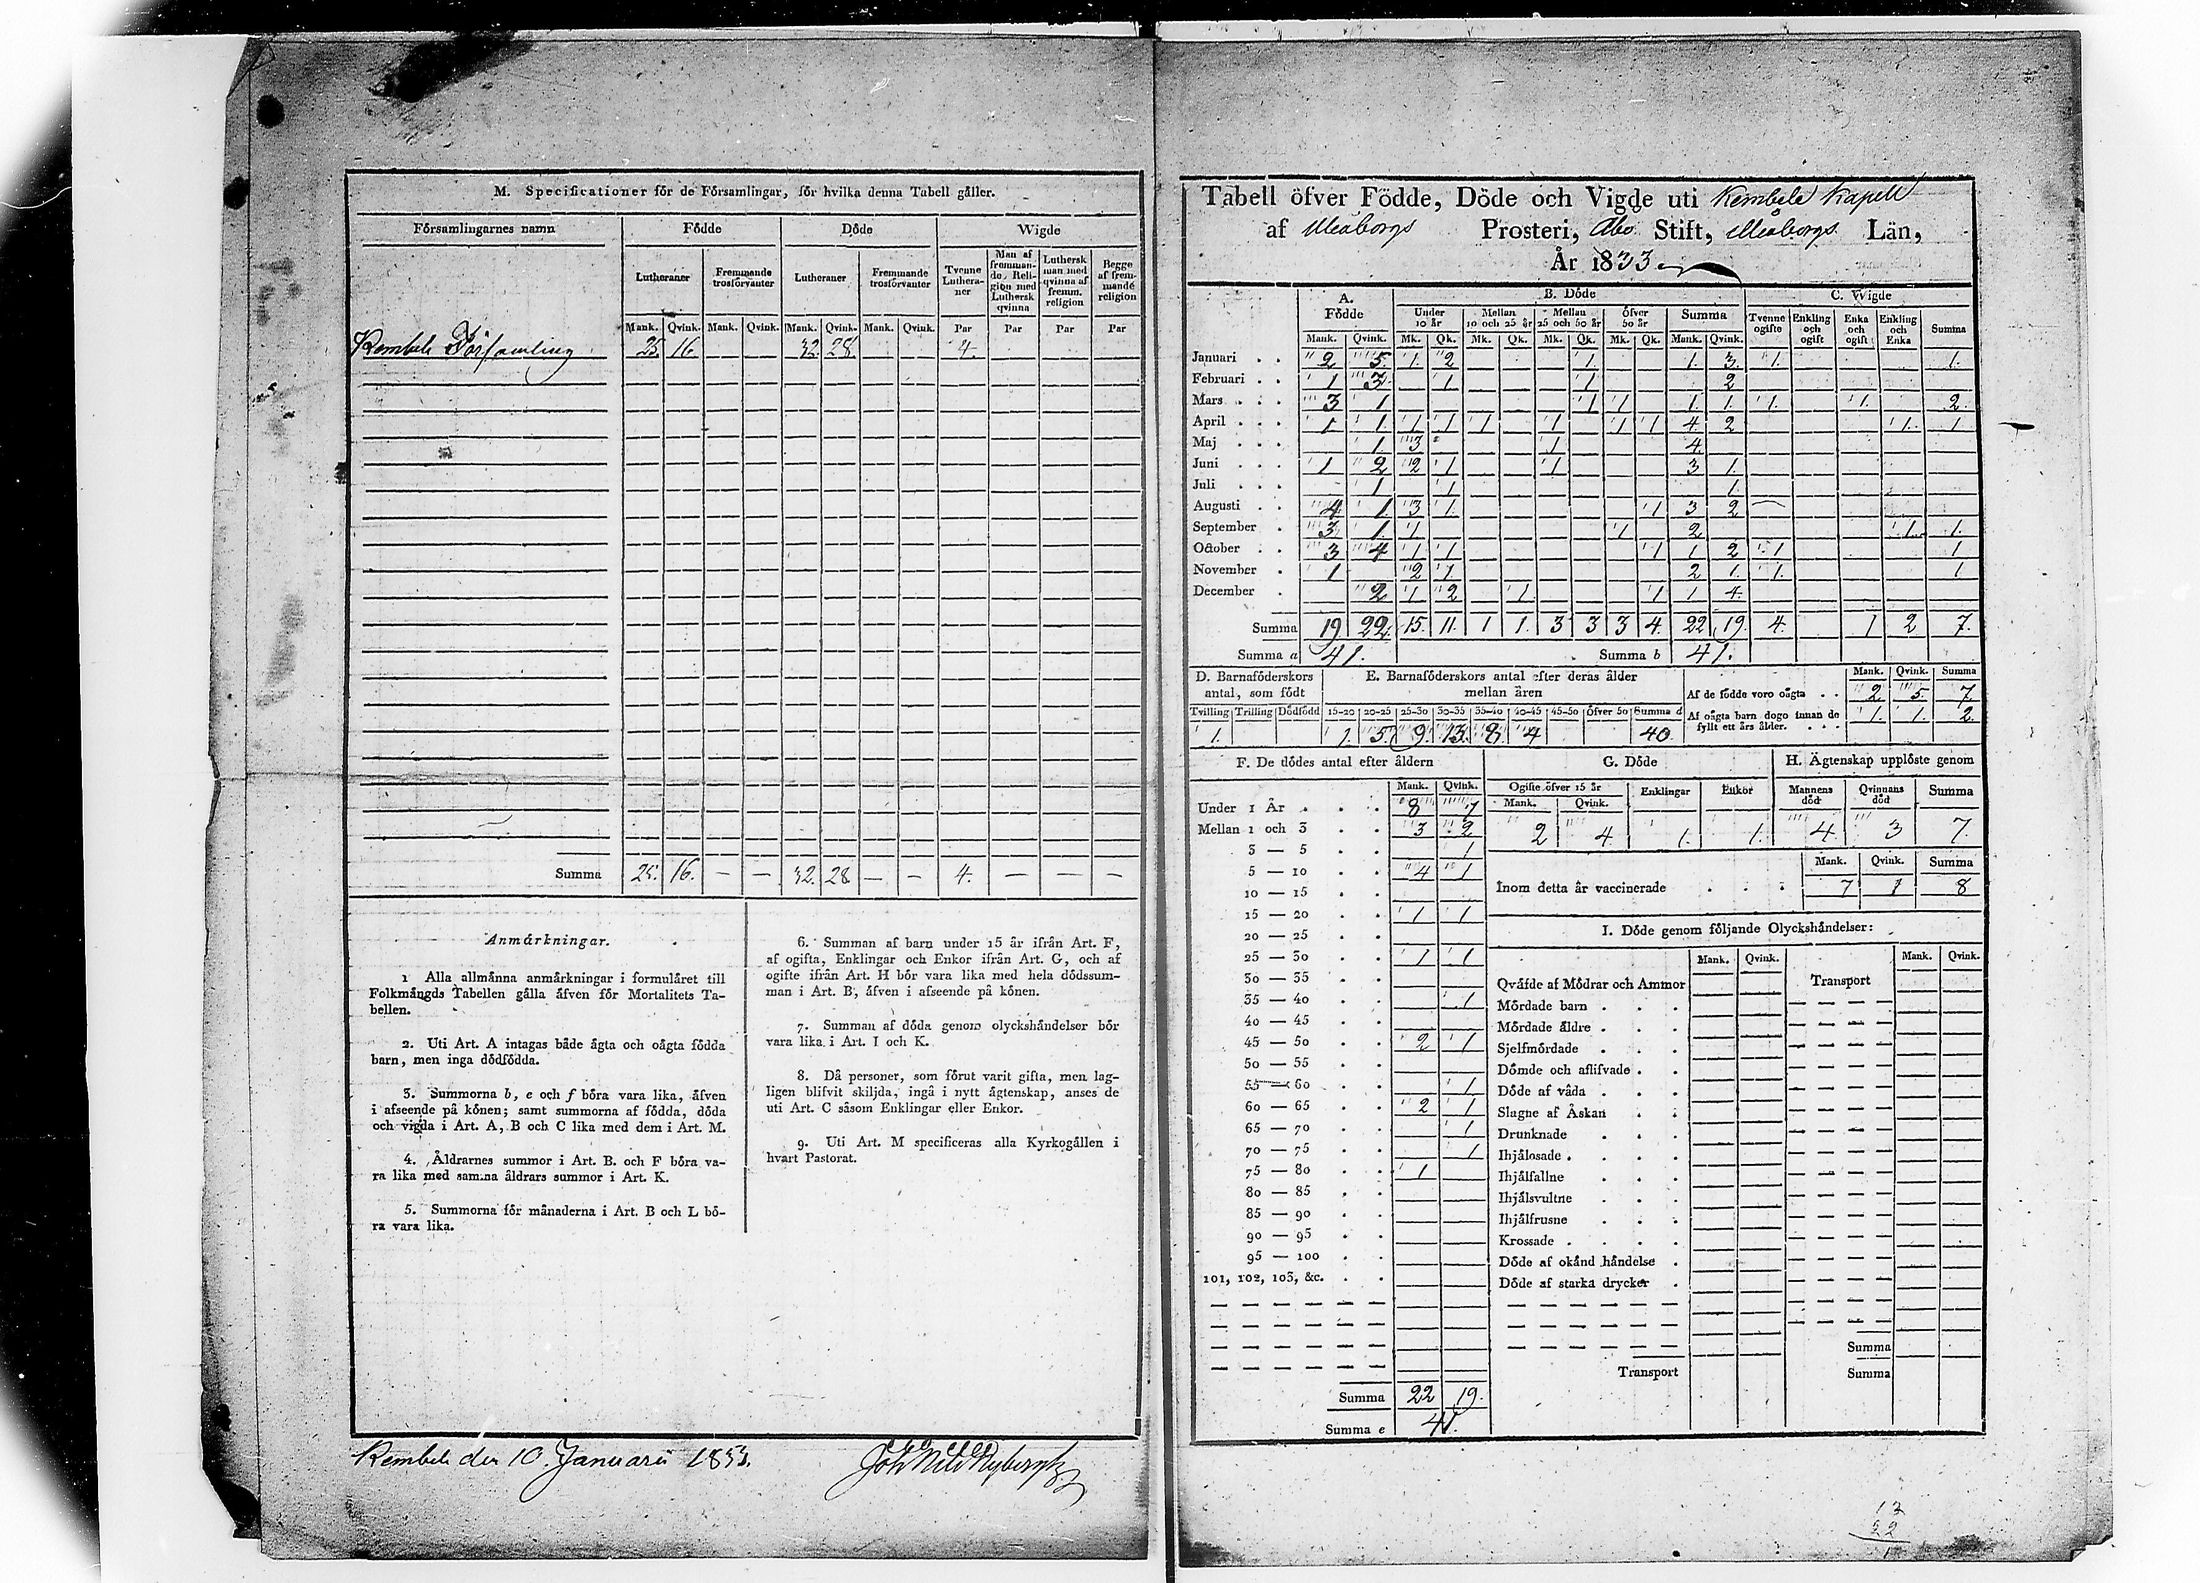 M. Specificationer för de Församlingar, för hvilka denna Tabell gäller.
Församlingarnes namn Födde Döde Wigde
Lutheraner Fremmande trosförvanter Lutheraner Fremmande trosförvanter Tvenne Lutheraner Man af fremmande Religion med Luthersk qvinna Luthersk man med qvinna af fremm. religion Begge af fremmande religion
Mank. Qvink. Mank. Qvink. Mank. Qvink. Mank. Qvink. Par Par Par Par
Kembele Församling 25. 16. 32. 28. 4.
Summa 25. 16. — — 32. 28 — — 4. — — —
Anmärkningar.
1 Alla allmänna anmärkningar i formuläret till
Folkmängds Tabellen gälla äfven för Mortalitets Ta-
bellen.
2. Uti Art. A intagas både ägta och oägta födda
barn, men inga dödfödda.
3. Summorna b, e och f böra vara lika, äfven
i afseende på könen; samt summorna af födda, döda
och vigda i Art. A, B och C lika med dem i Art. M.
4. Åldrarnes summor i Art. B. och F böra va-
ra lika med samma åldrars summor i Art. K.
5. Summorna för månaderna i Art. B och L bö-
ra vara lika.
6. Summan af barn under 15 år ifrån Art. F,
af ogifta, Enklingar och Enkor ifrån Art. G, och af
ogifte ifrån Art. H bör vara lika med hela dödssum-
man i Art. B, äfven i afseende på könen.
7. Summan af döda genom olyckshändelser bör
vara lika i Art. I och K.
8. Då personer, som förut varit gifta, men lag-
ligen blifvit skiljda, ingå i nytt ägtenskap, anses de
uti Art. C såsom Enklingar eller Enkor.
9. Uti Art. M specificeras alla Kyrkogällen i
hvart Pastorat.
Kembele den 10 Januarii 1833.
Tabell öfver Födde, Döde och Vigde uti Kembele Kapell
af Uleåborgs Prosteri, Åbo Stift, Uleåborgs Län,
År 1833
A. Födde B. Döde C. Wigde
Under 10 år Mellan 10 och 25 år Mellan 25 och 50 år Öfver 50 år Summa Tvenne ogifte Enkling och ogift Enka och ogift Enkling och Enka Summa
Mank. Qvink. Mk. Qk. Mk. Qk. Mk. Qk. Mk. Qk. Mank. Qvink.
Januari 2 5. 1. 2 1. 1. 3. 1. 1.
Februari 1 3. 1 1 2
Mars 3 1 1 1 1. 1. 1. 1. 2.
April 1 1 1 1 1 1 1 1 4. 2 1. 1
Maj 1 3 1 4.
Juni 1 2 2 1 1 3 1.
Juli 1 1 1.
Augusti 4 1. 3 1. 1 3 2
September 3 1. 1 1 2 1. 1.
October 3 4 1 1 1 1 2 1 1
November 1 2 1. 2 1. 1. 1
December 2 1 2 1. 1 1 4.
Summa 19 22. 15. 11. 1 1. 3 3 3 4. 22 19. 4. 1 2 7.
Summa a 41. Summa b 41.
D. Barnaföderskors antal, som födt
Tvilling Trilling Dödfödd
1.
E. Barnaföderskors antal efter deras ålder
mellan åren
15-20 20-25 25-30 30-35 35-40 40-45 45-50 Öfver 50 Summa d
1. 5. 9. 13. 8 4 40.
Mank. Qvink. Summa
Af de födde voro oägta 2 5. 7.
Af oägta barn dogo innan de fyllt ett års ålder. 1. 1. 2.
F. De dödes antal efter åldern
Mank. Qvink.
Under 1 År 8 7
Mellan 1 och 3 3 2
3 — 5 1
5 — 10 4 1
10 — 15
15 — 20 1 1
20 — 25
25 — 30 1 1
30 — 35
35 — 40 1
40 — 45
45 — 50 2 1
50 — 55
55 — 60 1
60 — 65 2 1
65 — 70 1
70 — 75 1
75 — 80 1
80 — 85
85 — 90
90 — 95
95 — 100
101, 102, 103, &c.
Summa 22 19.
Summa e 41.
G. Döde
Ogifte öfver 15 år Enklingar Enkor
Mank. Qvink.
2 4. 1. 1.
H. Ägtenskap upplöste genom
Mannens död Qvinnans död Summa
4. 3 7.
Mank. Qvink. Summa
Inom detta år vaccinerade 7 1 8
I. Döde genom följande Olyckshändelser:
Mank. Qvink. Mank. Qvink.
Qväfde af Mödrar och Ammor Transport
Mördade barn
Mördade äldre
Sjelfmördade
Dömde och aflifvade
Döde af våda
Slagne af Åskan
Drunknade
Ihjälosade
Ihjälfallne
Ihjälsvultne
Ihjälfrusne
Krossade
Döde af okänd händelse
Döde af starka drycker
Summa
Transport Summa